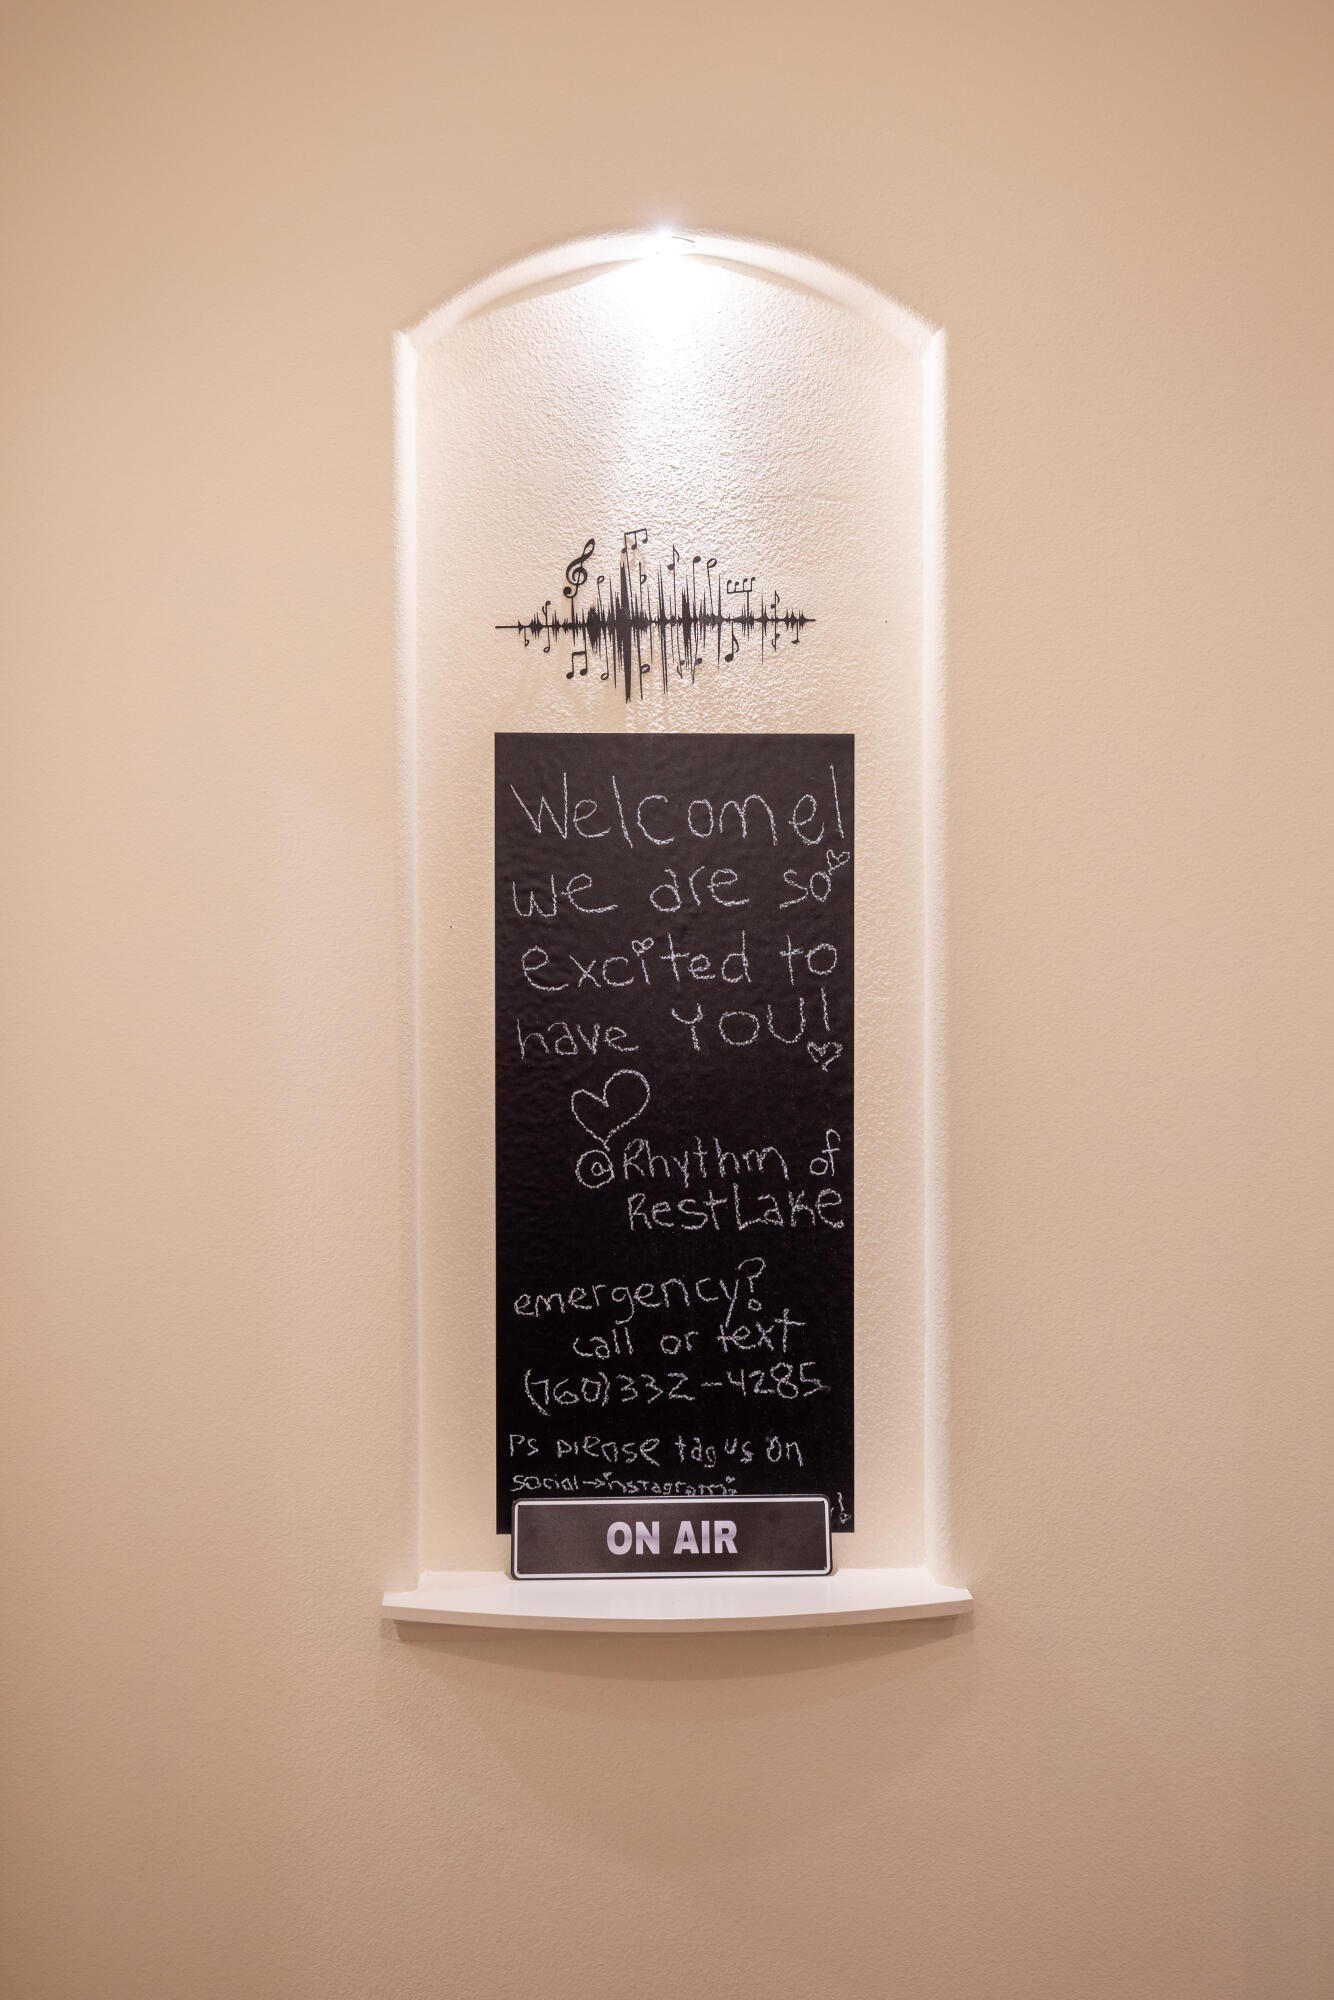 Welcome!
we are so
excited to
have YOU!
@Rhythm of
RestLake
emergency?
call or text
(760)332-4285
PS please tag us on
social→instagram:
!
ON AIR